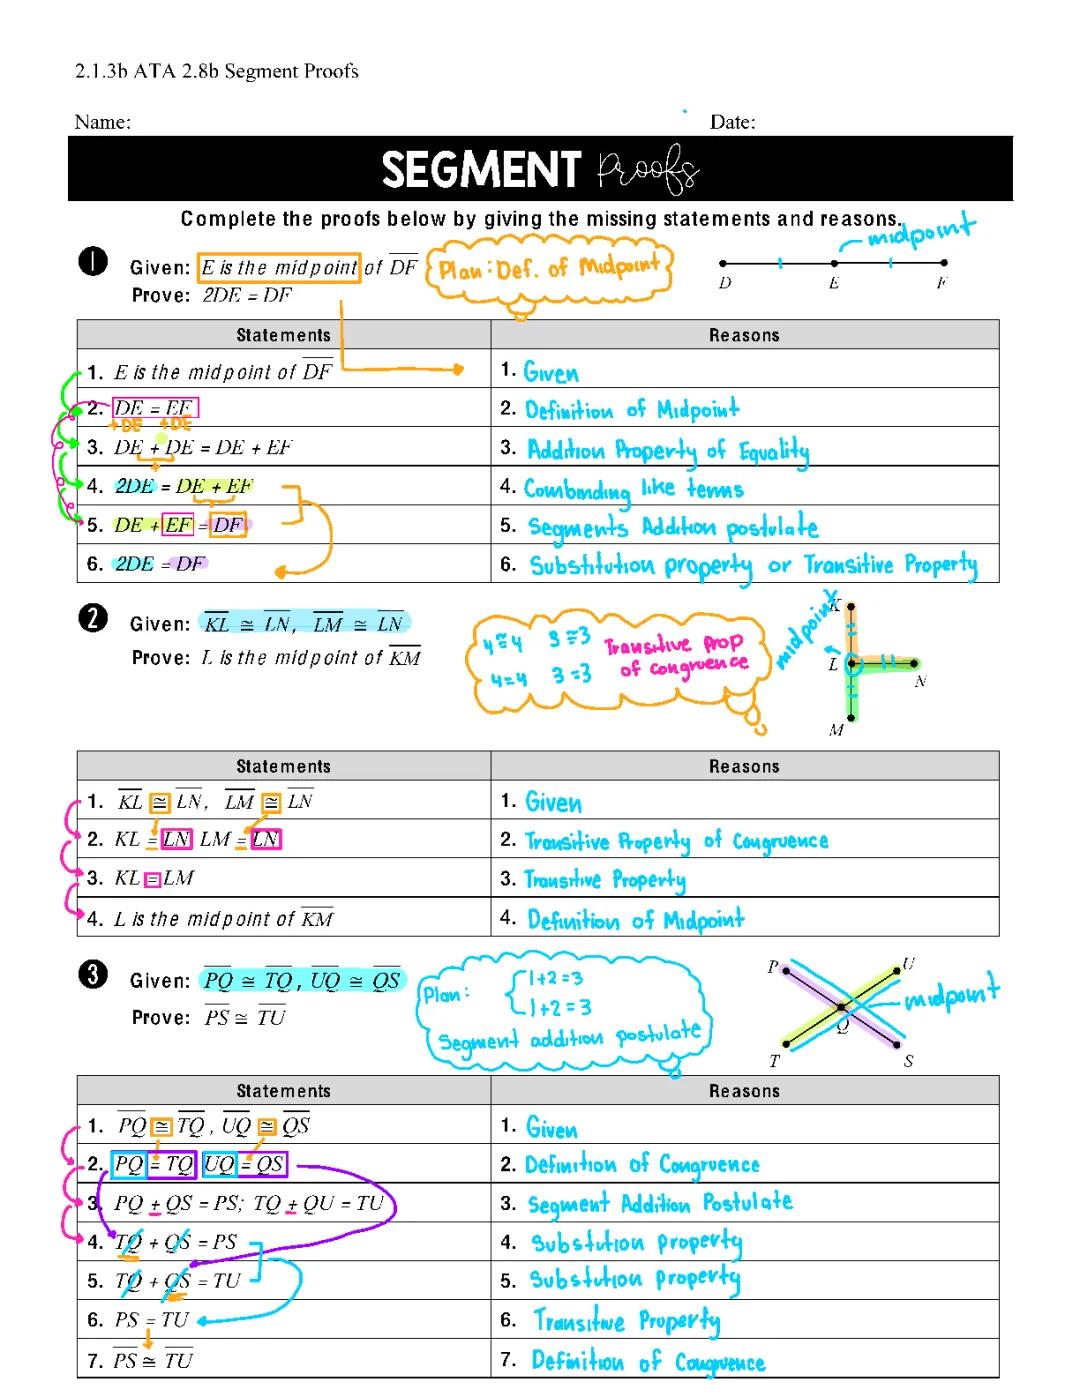 2.1.3b ATA 2.8b Segment Proofs
Name: Date:
SEGMENT Proofs
Complete the proofs below by giving the missing statements and reasons.
midpoint
1 Given: E is the midpoint of DF
Prove: 2DE = DF
Plan: Def. of Midpoint
D E F
Statements Reasons
1. E is the midpoint of DF 1. Given
2. DE = EF 2. Definition of Midpoint
+DE +DE
3. DE + DE = DE + EF 3. Addition Property of Equality
4. 2DE = DE + EF 4. Combinding like terms
5. DE + EF = DF 5. Segments Addition postulate
6. 2DE = DF 6. Substitution property or Transitive Property
2 Given: KL ≅ LN, LM ≅ LN
Prove: L is the midpoint of KM
4≅4 3≅3 Transitive prop
4=4 3=3 of congruence
midpoint
K
L
N
M
Statements Reasons
1. KL ≅ LN, LM ≅ LN 1. Given
2. KL = LN LM = LN 2. Transitive Property of Congruence
3. KL = LM 3. Transitive Property
4. L is the midpoint of KM 4. Definition of Midpoint
3 Given: PQ ≅ TQ, UQ ≅ QS
Prove: PS ≅ TU
Plan: 1+2=3
1+2=3
Segment addition postulate
P U
midpoint
Q
T S
Statements Reasons
1. PQ ≅ TQ, UQ ≅ QS 1. Given
2. PQ = TQ UQ = QS 2. Definition of Congruence
3. PQ + QS = PS; TQ + QU = TU 3. Segment Addition Postulate
4. TQ + QS = PS 4. Substution property
5. TQ + QS = TU 5. Substution property
6. PS = TU 6. Transitive Property
7. PS ≅ TU 7. Definition of Congruence